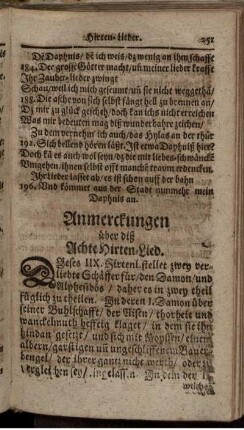 Hirten-lieder. 251
Dẽ Daphnis/ dẽ ich weis/ dz wenig an ihen schaffe
184. Der grosse Götter macht/ uñ meiner lieder kraffe
Ihr Zauber-lieder zwingt
Schau/ weil ich mich gesäumt/ uñ sie nicht weggethã/
188. Die asche von sich selbst fängt hell zu brennen an/
Dz mir zu glück geschehe/ doch kan ich nicht erreichen
Was mir bedeuten mag diß wunderbahre zeichen/
Zu dem vernehm' ich auch/ das Hylas an der thür
192. Sich bellend hören läßt. Ist etwa Daphnis hier?
Doch kã es auch wol seyn/ dz die mit liebes-schmäncke
Umgehen/ ihnen selbst offt manche traum erdencken.
Ihr lieder lasset ab/ es ist schon auff der bahn
196. Und kömmet aus der Stadt nunmehr mein
Daphnis an.
Anmerckungen
über diß
Achte Hirten-Lied.
Dieses IIX. Hirtenl. stellet zwey ver-
liebte Schäffer für/ den Damon/ und
Alphesibös/ daher es in zwey theil
füglich zu theilen. In deren 1. Damon über
seiner Buhlschafft/ der Nisen/ thorheit und
wanckelmuth hefftig klaget/ in dem sie ihr
hindan gesetzt/ und sich mit Mopsen/ einem
garstigen uñ ungeschliffenen Bauer-
bengel/ der ihrer gar nicht werth/ oder zu
vergleichen sey/ ingelassen. In dem der 1.
welches